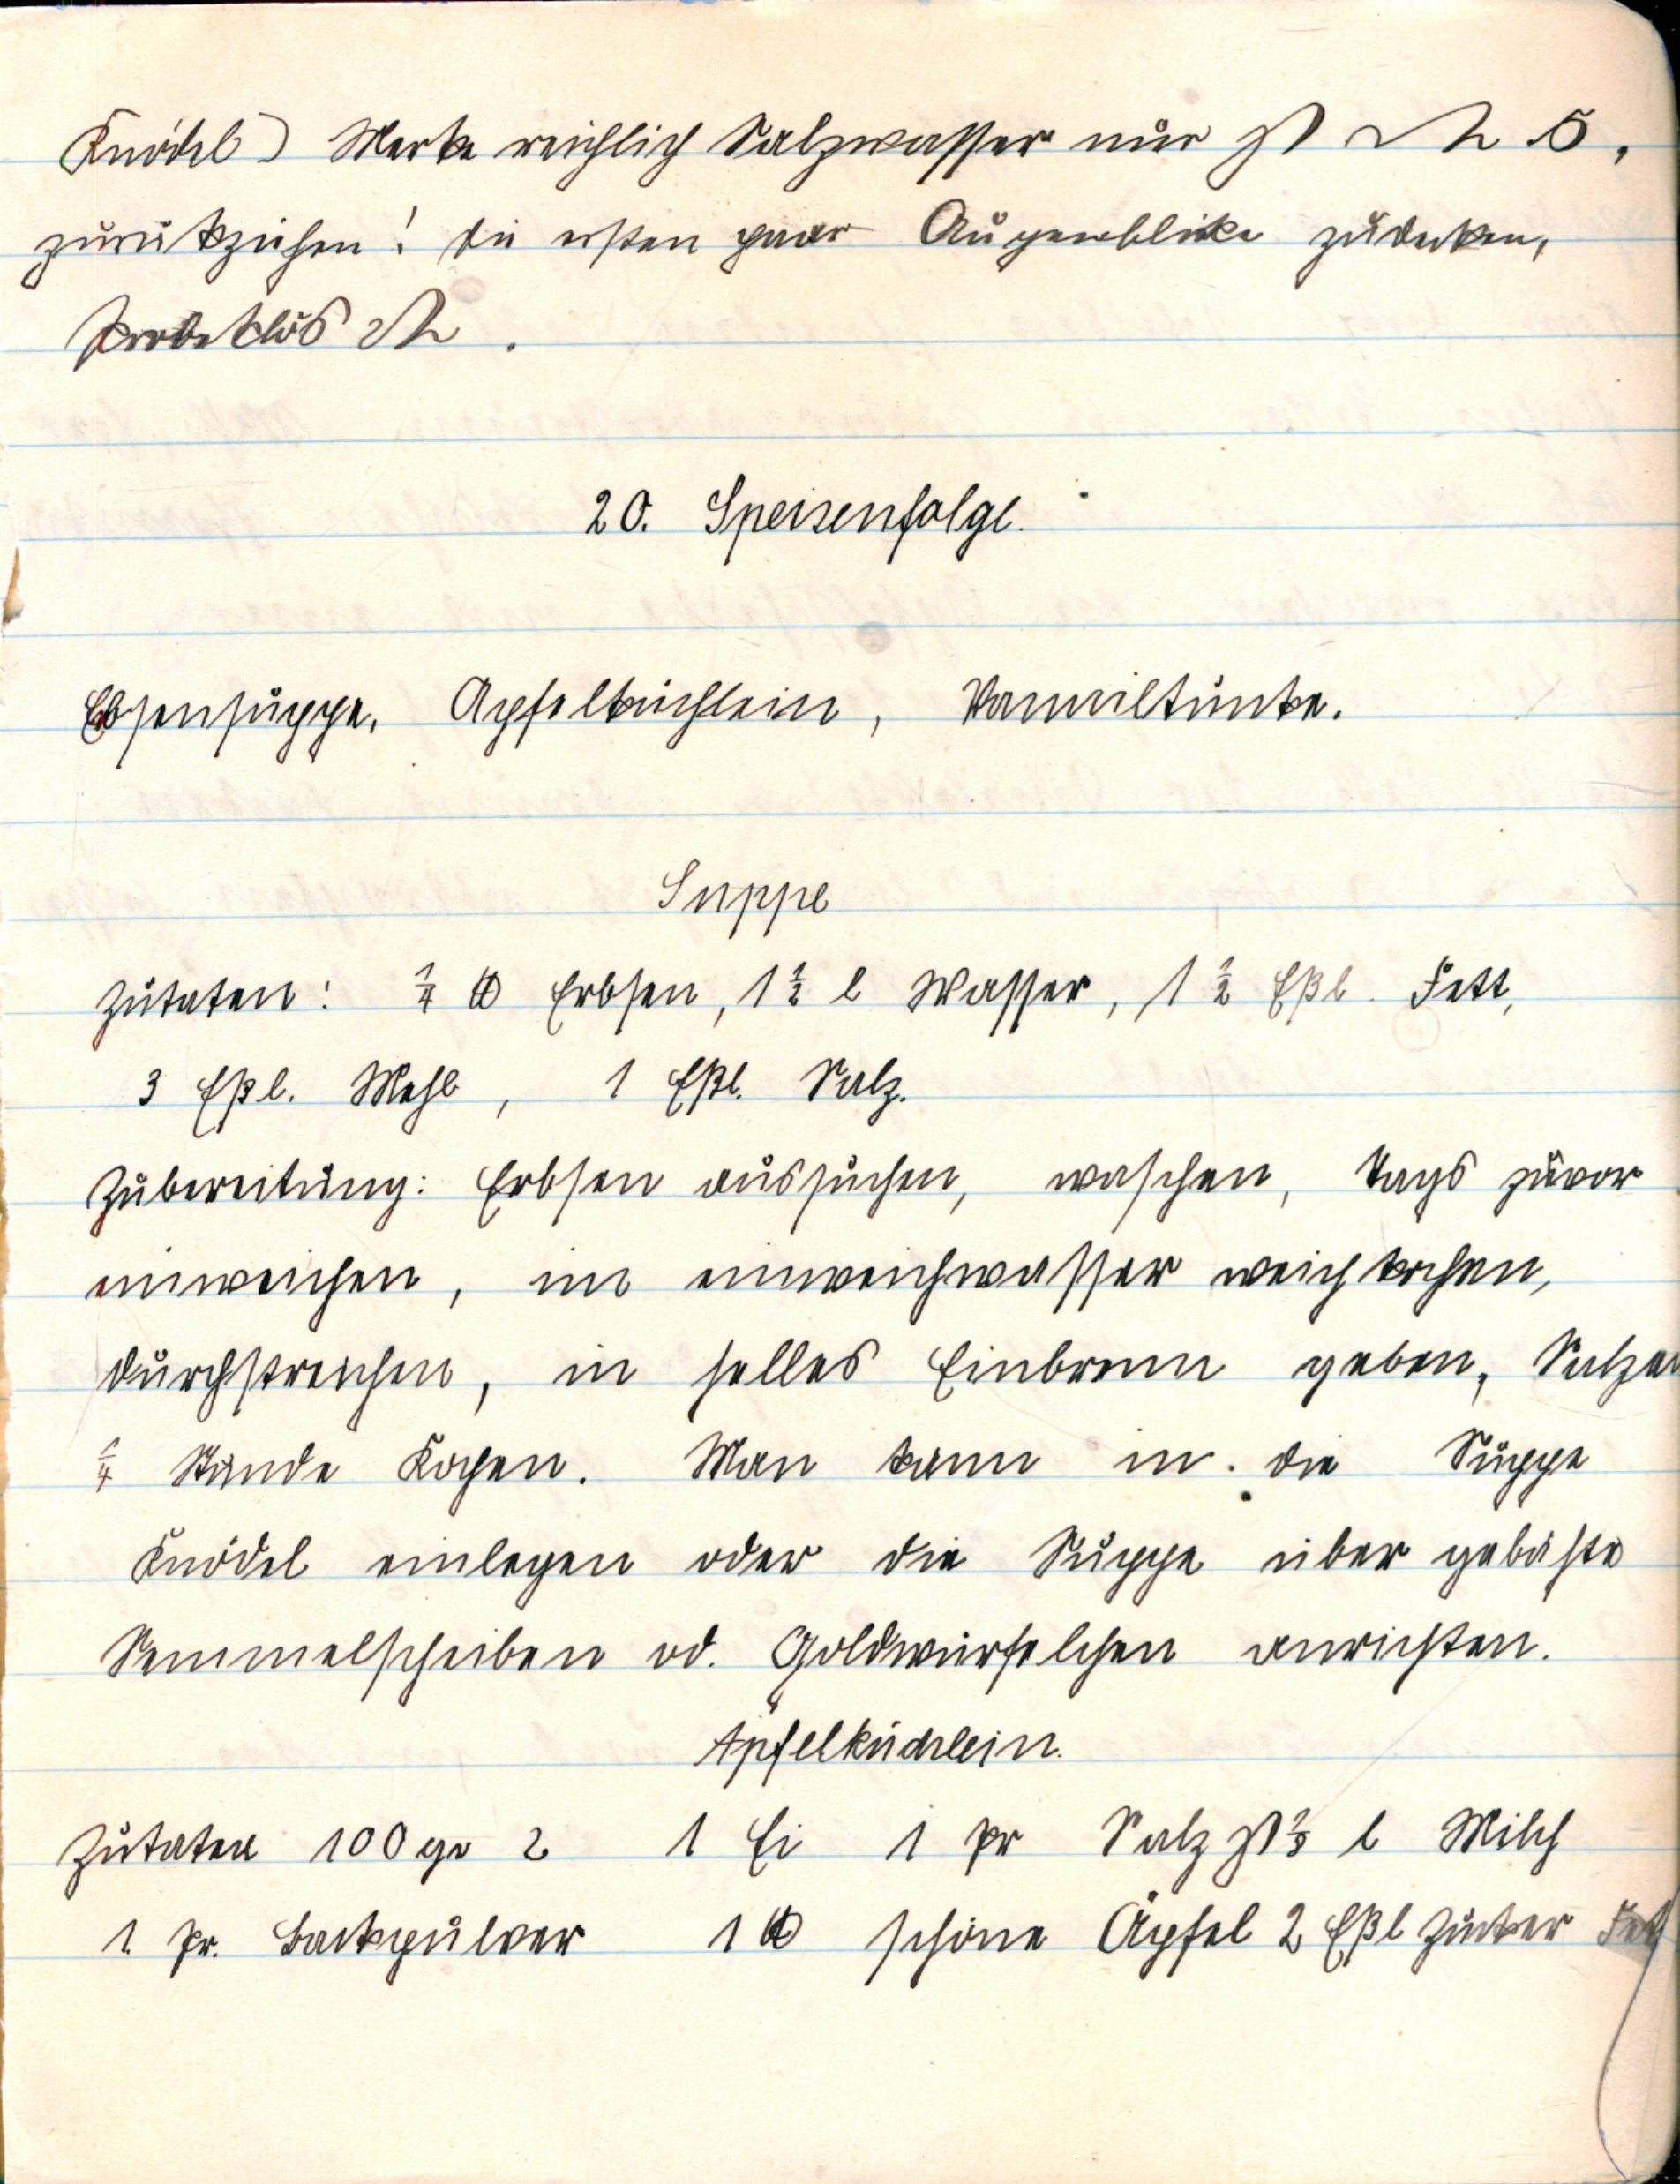 Knödel) Merke reichlich Salzwasser nur
zurükziehen! die ersten paar Augenblike zudeken,
Probeklös
20. Speisenfolge.
Ebsensuppe, Apfelküchlein, Vanniltunke.
Suppe
Zutaten: ¼ ℔ Erbsen, 1½ l Wasser, 1½ Eßl. Fett,
3 Eßl. Mehl, 1 Eßl. Salz.
Zubereitung: Erbsen aussuchen, waschen, tags zuvor
einweichen, im einweichwasser weich kochen,
durchstreichen, in helles Einbrenn geben, Salzen
¼ Stunde Kochen. Man kann in die Suppe
Knödel einlegen oder die Suppe über gebähte
Semmelscheiben od. Goldwürfelchen anrichten.
Äpfelküchlein.
Zutaten 100 gr 1 Ei 1 Pr Salz l Milch
1 Pr. Backpulver 1 ℔ schöne Äpfel 2 Eßl Zucker Fett